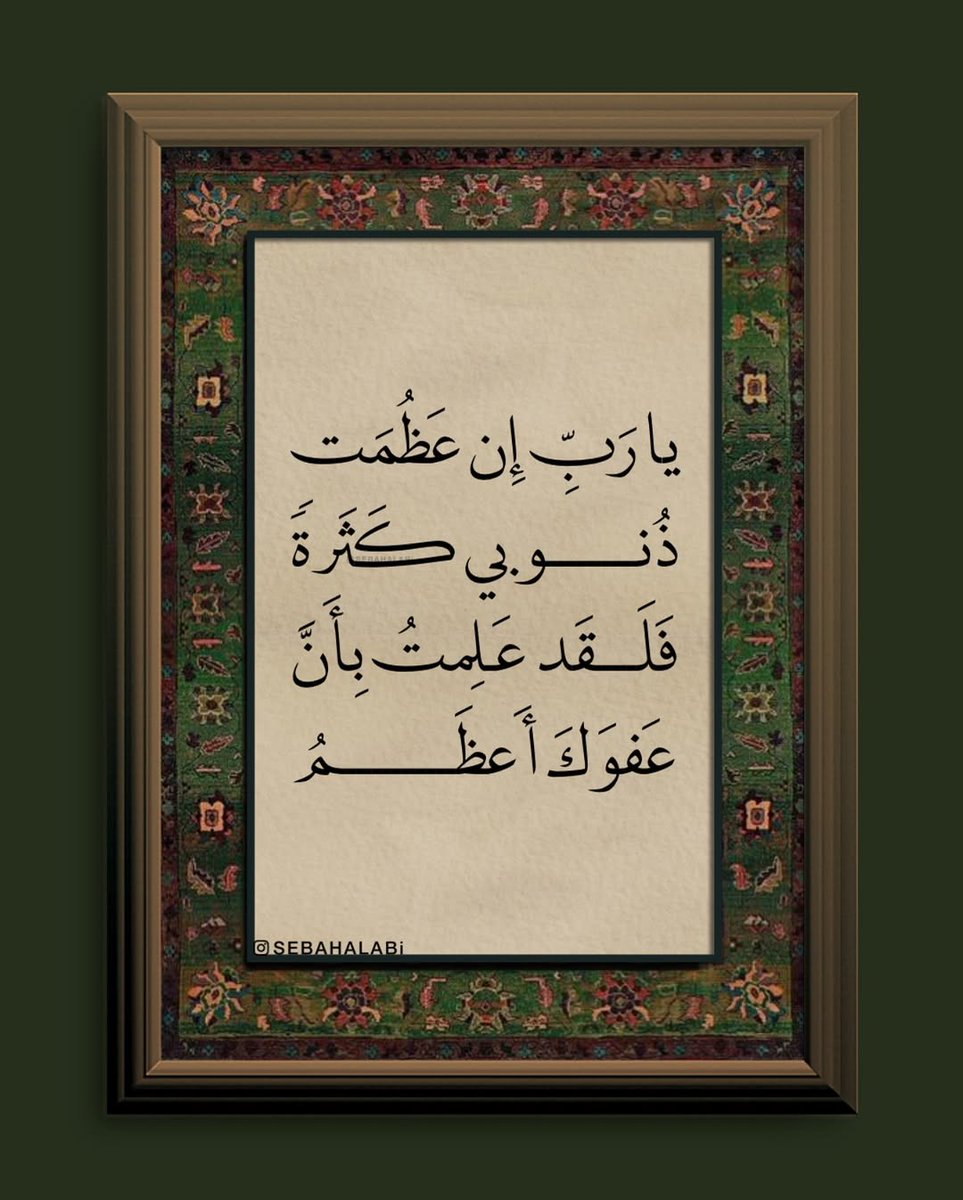 يا رَبِّ إِن عَظُمَت
ذُنوبي كَثَرةََ
فَلَقَد عَلِمتُ بِأَنَّ
عَفوَكَ أَعظَمُ
SEBAHALABi
SEBAHALABi